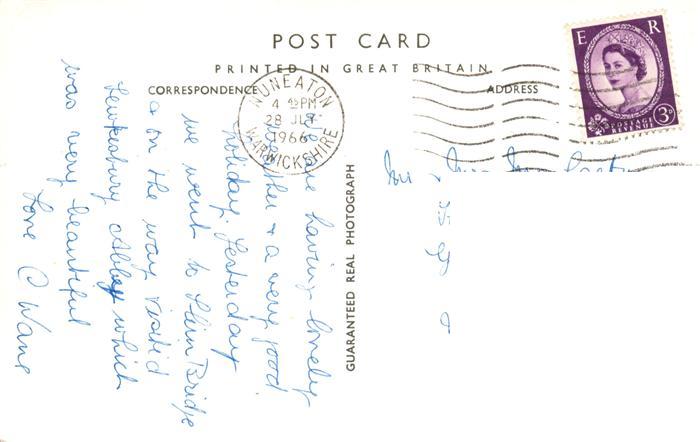 POST CARD
PRINTED IN GREAT BRITAIN
CORRESPONDENCE
ADDRESS
E R
POSTAGE
REVENUE
3D
NUNEATON
4 PM
28 JLY
1966
WARWICKSHIRE
GUARANTEED REAL PHOTOGRAPH
are having lovely
weather & a very good
holiday. Yesterday
we went to Slim Bridge
& on the way visited
Tewkesbury Abbey which
was very beautiful
Love C